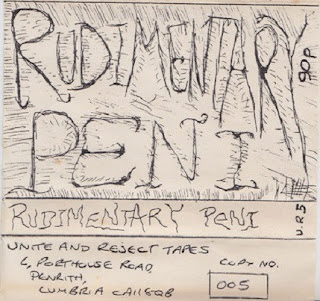 RUDIMENTARY
PENI
90P
RUDIMENTARY PENI
U.R5
UNITE AND REJECT TAPES
6, PORTHOUSE ROAD,
PENRITH,
CUMBRIA CA118QB
COPY NO.
005